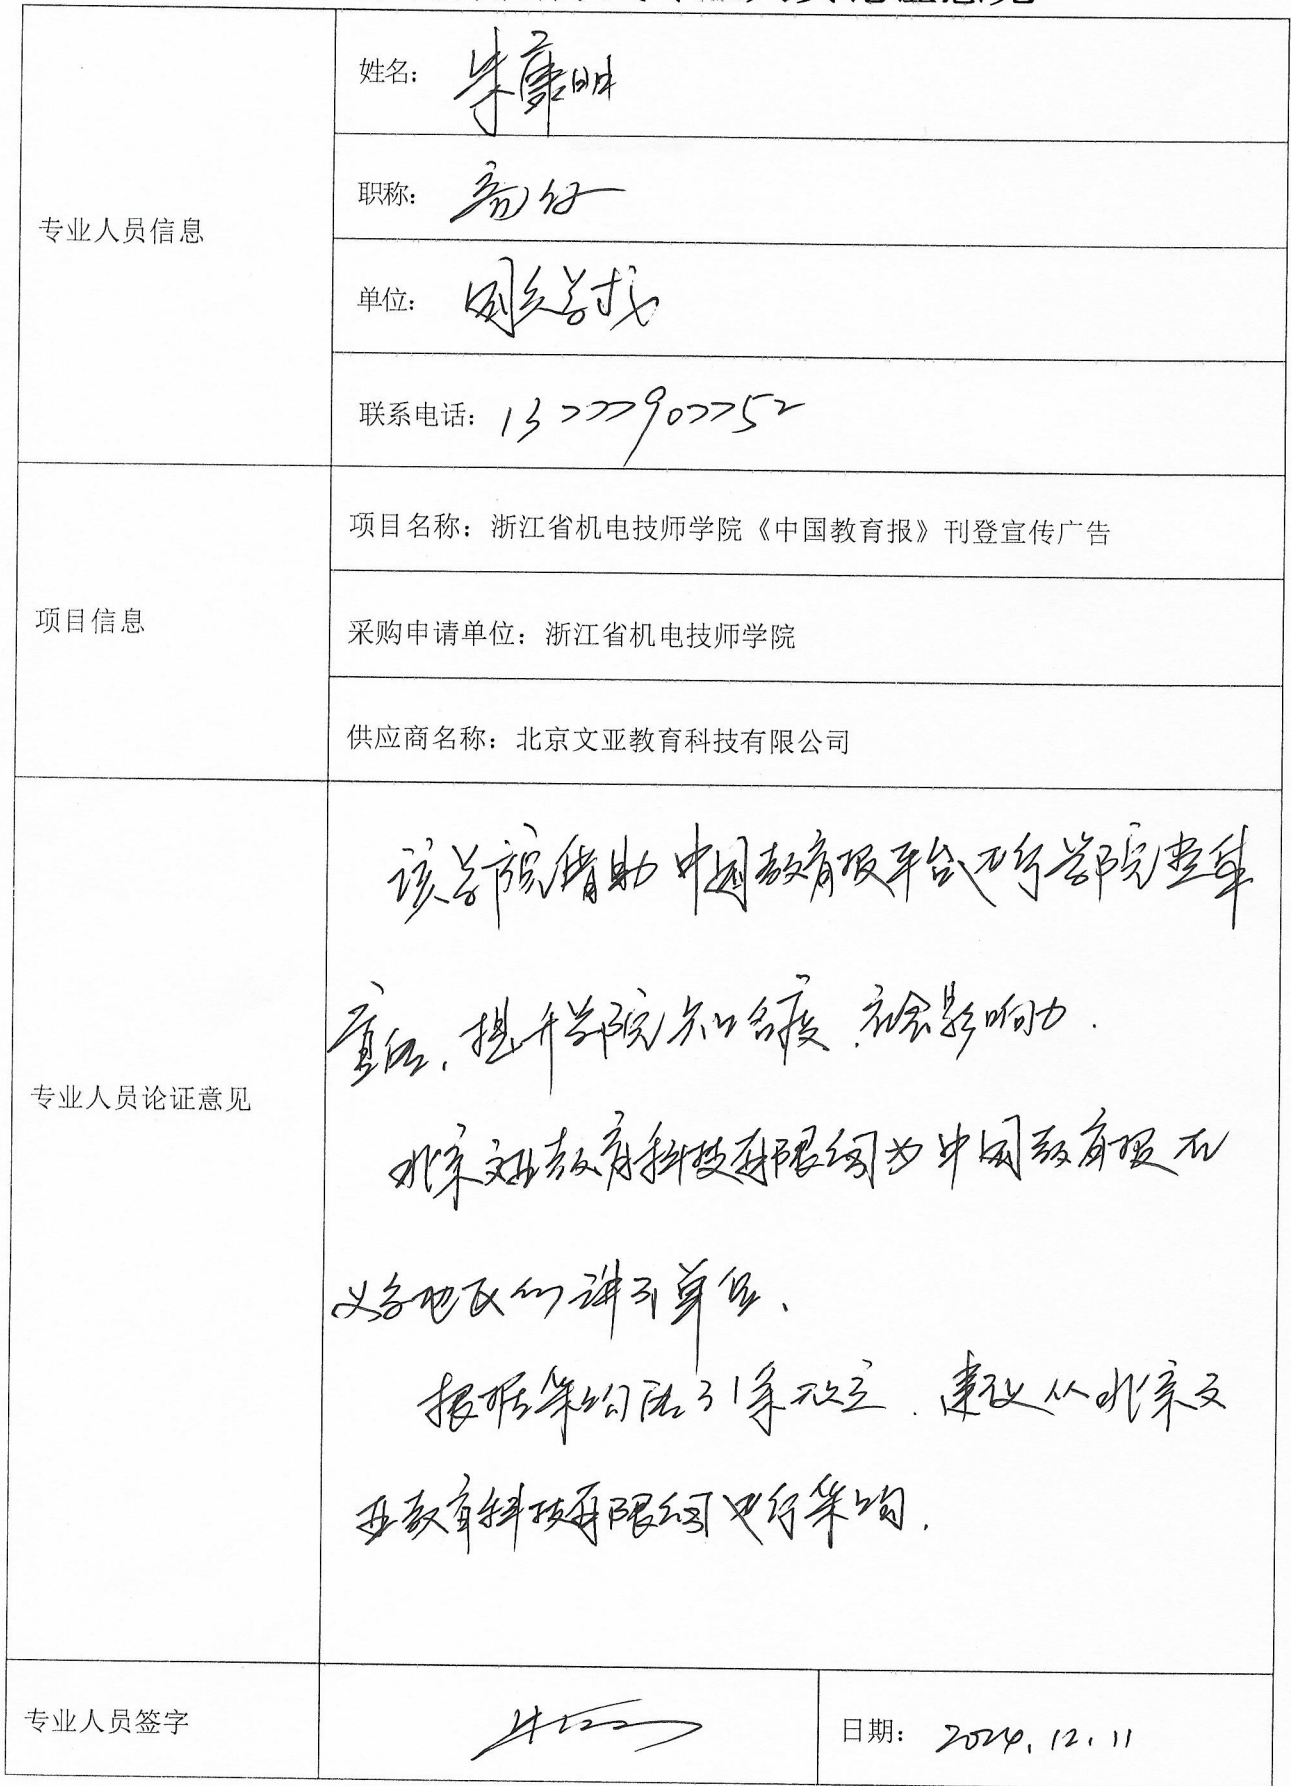 专业人员信息
姓名：朱康明
职称：高工
单位：
联系电话：13777907752
项目信息
项目名称：浙江省机电技师学院《中国教育报》刊登宣传广告
采购申请单位：浙江省机电技师学院
供应商名称：北京文亚教育科技有限公司
专业人员论证意见
该学院借助中国教育报平台进行学院
宣传，提升学院知名度、社会影响力．
北京文亚教育科技有限公司为中国教育报在
单位、
根据采购法31条规定．建议从北京文
亚教育科技有限公司进行采购．
专业人员签字
日期：2024.12.11